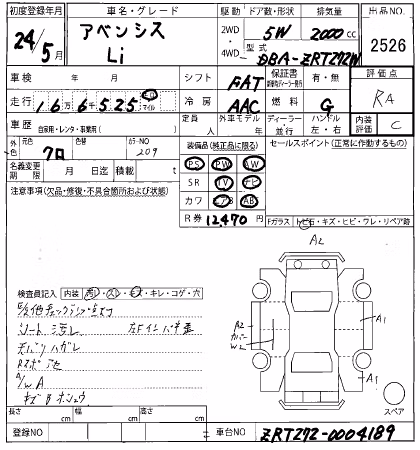 初度登録年月 車名・グレード 駆動 ドア数・形状 排気量 出品NO.
24年 5月 アベンシス Li 2WD・4WD 5W 2000cc 2526
型式 DBA-ZRT272W
車検 年 月 シフト FAT 保証書 有・無 評価点 RA
走行 16万6千525 キロ マイル 冷房 AAC 燃料 G
車歴 自家用・レンタ・事業用( ) 定員 人 外車モデル 年 ディーラー・並行 ハンドル 左・右 内装評価 C
外色 元色 クロ 色替 カラーNO 209 装備品(純正品に限る) セールスポイント(正常に作動するもの)
名義変更期限 月 日迄 積載 t PS PW AW
注意事項(欠品・修復・不具合箇所および状態) SR TV ナビ
カワ エアB AB
R券 12,470円 Fガラス トビ石・キズ・ヒビ・ワレ・リペア跡
A2
検査員記入 内装 汚レ・スレ・キズ・キレ・コゲ・穴
シート汚レ
天バリハガレ
A/W A
A2 カバー W2 A1
A1
スペア
長さ cm 幅 cm 高さ cm
登録NO 車台NO ZRT272-0004189